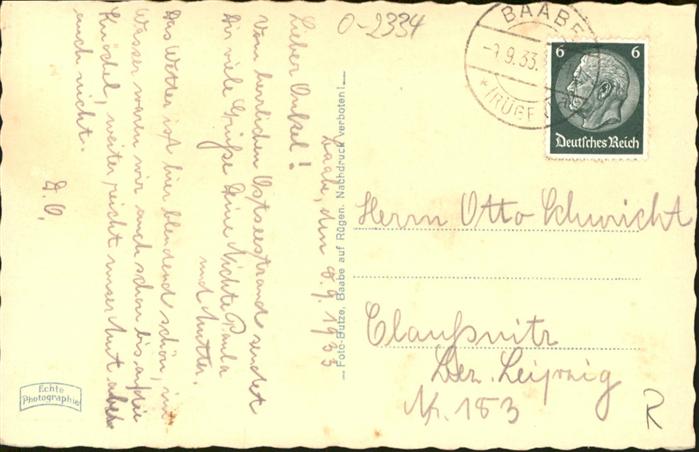 O-2334
BAABE
-9.9.33.
*(RÜGEN
6 6
Deutsches Reich
Baabe, den 8.9.1933
Lieber Onkel!
Vom herrlichen Ostseestrand sendet
Dir viele Grüße Deine Nichte Paula
und Mutter.
Das Wetter ist hier blendend schön, im
Wasser waren wir auch schon bis an die
Knöchel, weiter reicht unser Mut aber
auch nicht.
D. O.
— Foto-Butze, Baabe auf Rügen. Nachdruck verboten! —
Herrn Otto Schwicht
Claußnitz
Bez. Leipzig
Nr. 183
R
Echte
Photographie